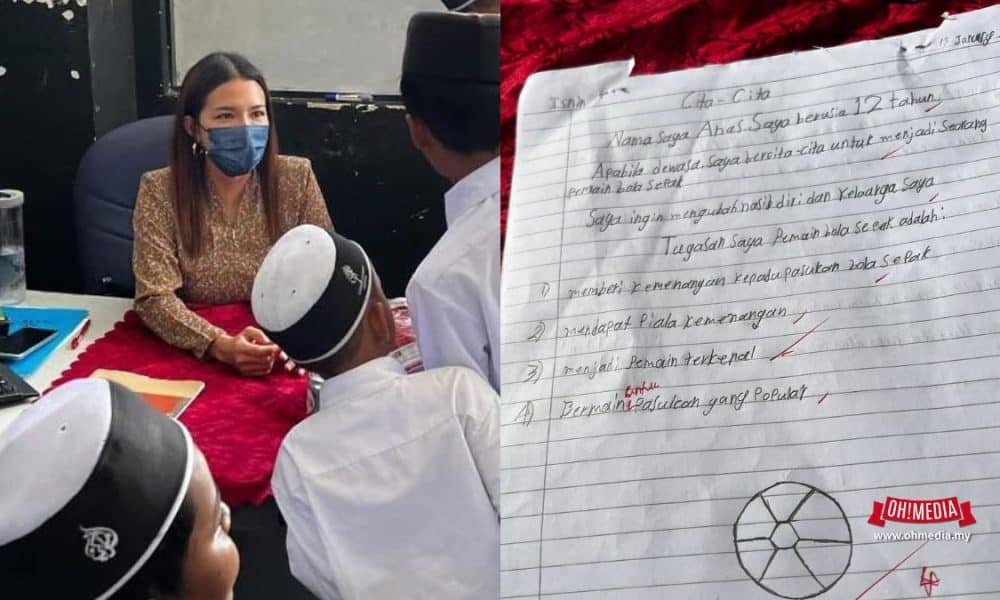 Isnin
15 January
Cita-Cita
Nama saya Anas. Saya berusia 12 tahun
Apabila dewasa, saya bercita-cita untuk menjadi seorang
pemain bola sepak
Saya ingin mengubah nasib diri dan keluarga saya
Tugasan saya pemain bola sepak adalah:
1) memberi kemenangan kepada pasukan bola sepak
2) mendapat Piala kemenangan
3) menjadi pemain terkenal
untuk
4) Bermain pasukan yang Popular
OH!MEDIA
www.ohmedia.my